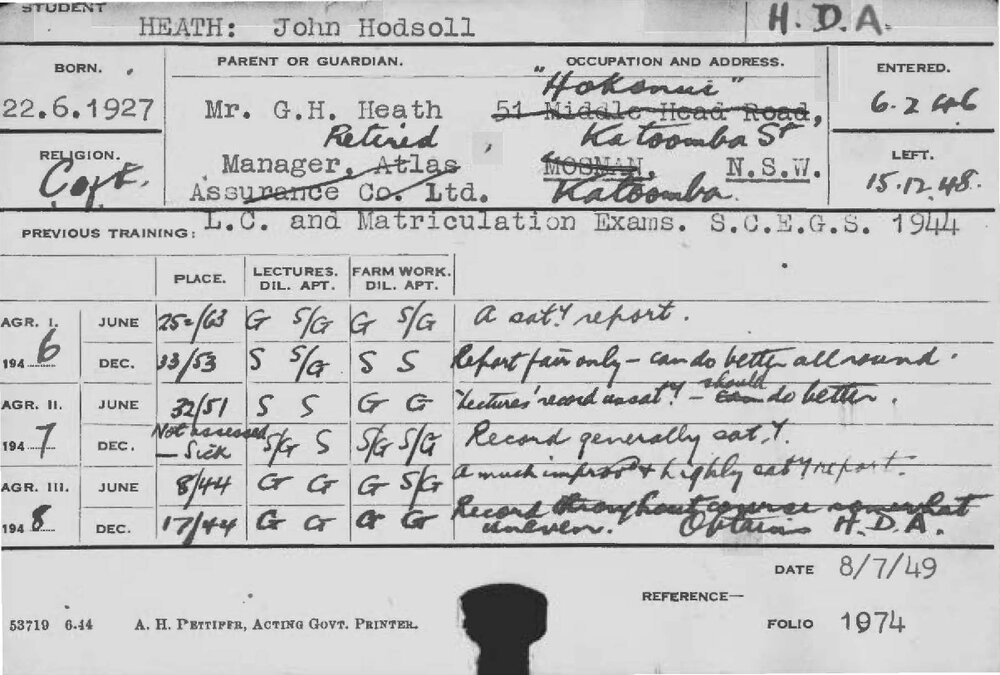 STUDENT
HEATH: John Hodsoll H.D.A.
BORN. PARENT OR GUARDIAN. OCCUPATION AND ADDRESS. ENTERED.
"Hokonui"
22.6.1927 Mr. G.H. Heath 51 Middle Head Road, 6.2.46
Retired Katoomba St
RELIGION. Manager, Atlas MOSMAN, N.S.W. LEFT.
C of E. Assurance Co. Ltd. Katoomba. 15.12.48.
PREVIOUS TRAINING: L.C. and Matriculation Exams. S.C.E.G.S. 1944
PLACE. LECTURES. FARM WORK.
DIL. APT. DIL. APT.
AGR. I. JUNE 25=/63 G S/G G S/G A saty. report.
1946 DEC. 33/53 S S/G S S Report fair only - can do better all round.
AGR. II. JUNE 32/51 S S G G 'Lectures' record unsaty. - should can do better.
1947 DEC. Not assessed - Sick S/G S S/G S/G Record generally saty.
AGR. III. JUNE 8/44 G G G S/G A much improved & highly saty report.
1948 DEC. 17/44 G G G G Record throughout course somewhat
uneven. Obtains H.D.A.
DATE 8/7/49
REFERENCE—
53719 6.44 A. H. PETTIFER, ACTING GOVT. PRINTER. FOLIO 1974